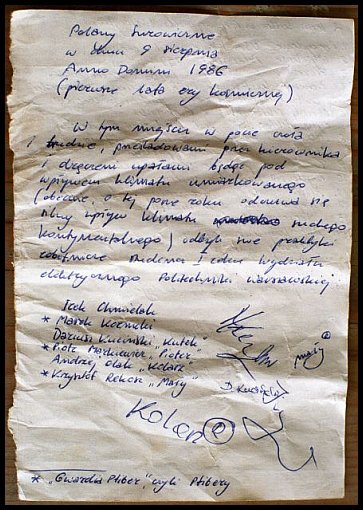 Polany Surowiczne
w dniu 9 sierpnia
Anno Domini 1986
(pierwsze lata ery kosmicznej)
W tym miejscu w pocie czoła
i trudzie, prześladowani przez kierownika
i dręczeni upałami będąc pod
wpływem klimatu umiarkowanego
(obecnie, o tej porze roku odczuwa się
silny wpływ klimatu suchego
kontynentalnego) odbyli swe praktyki
robotnicze studenci I roku wydziału
elektrycznego Politechniki Warszawskiej:
Jacek Chmielak
* Marek Koźnicki
Dariusz Kuciński "Kutek"
* Piotr "Pioter"
Andrzej "Kolarz"
* Krzysztof "Mały"
mały
D. Kuciński
* "Gwardia Pliber", czyli Plibery